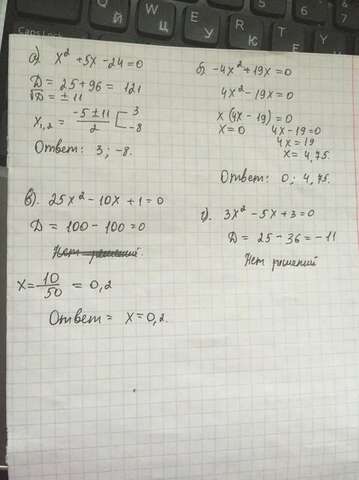 а) x² + 5x - 24 = 0
D = 25 + 96 = 121
√D = ± 11
x₁,₂ = (-5 ± 11)/2 [ 3
-8
Ответ: 3; -8.
б) -4x² + 19x = 0
4x² - 19x = 0
x (4x - 19) = 0
x = 0 4x - 19 = 0
4x = 19
x = 4,75.
Ответ: 0; 4,75.
в). 25x² - 10x + 1 = 0
D = 100 - 100 = 0
Нет решений.
x = 10/50 = 0,2
Ответ = x = 0,2.
г). 3x² - 5x + 3 = 0
D = 25 - 36 = -11
Нет решений